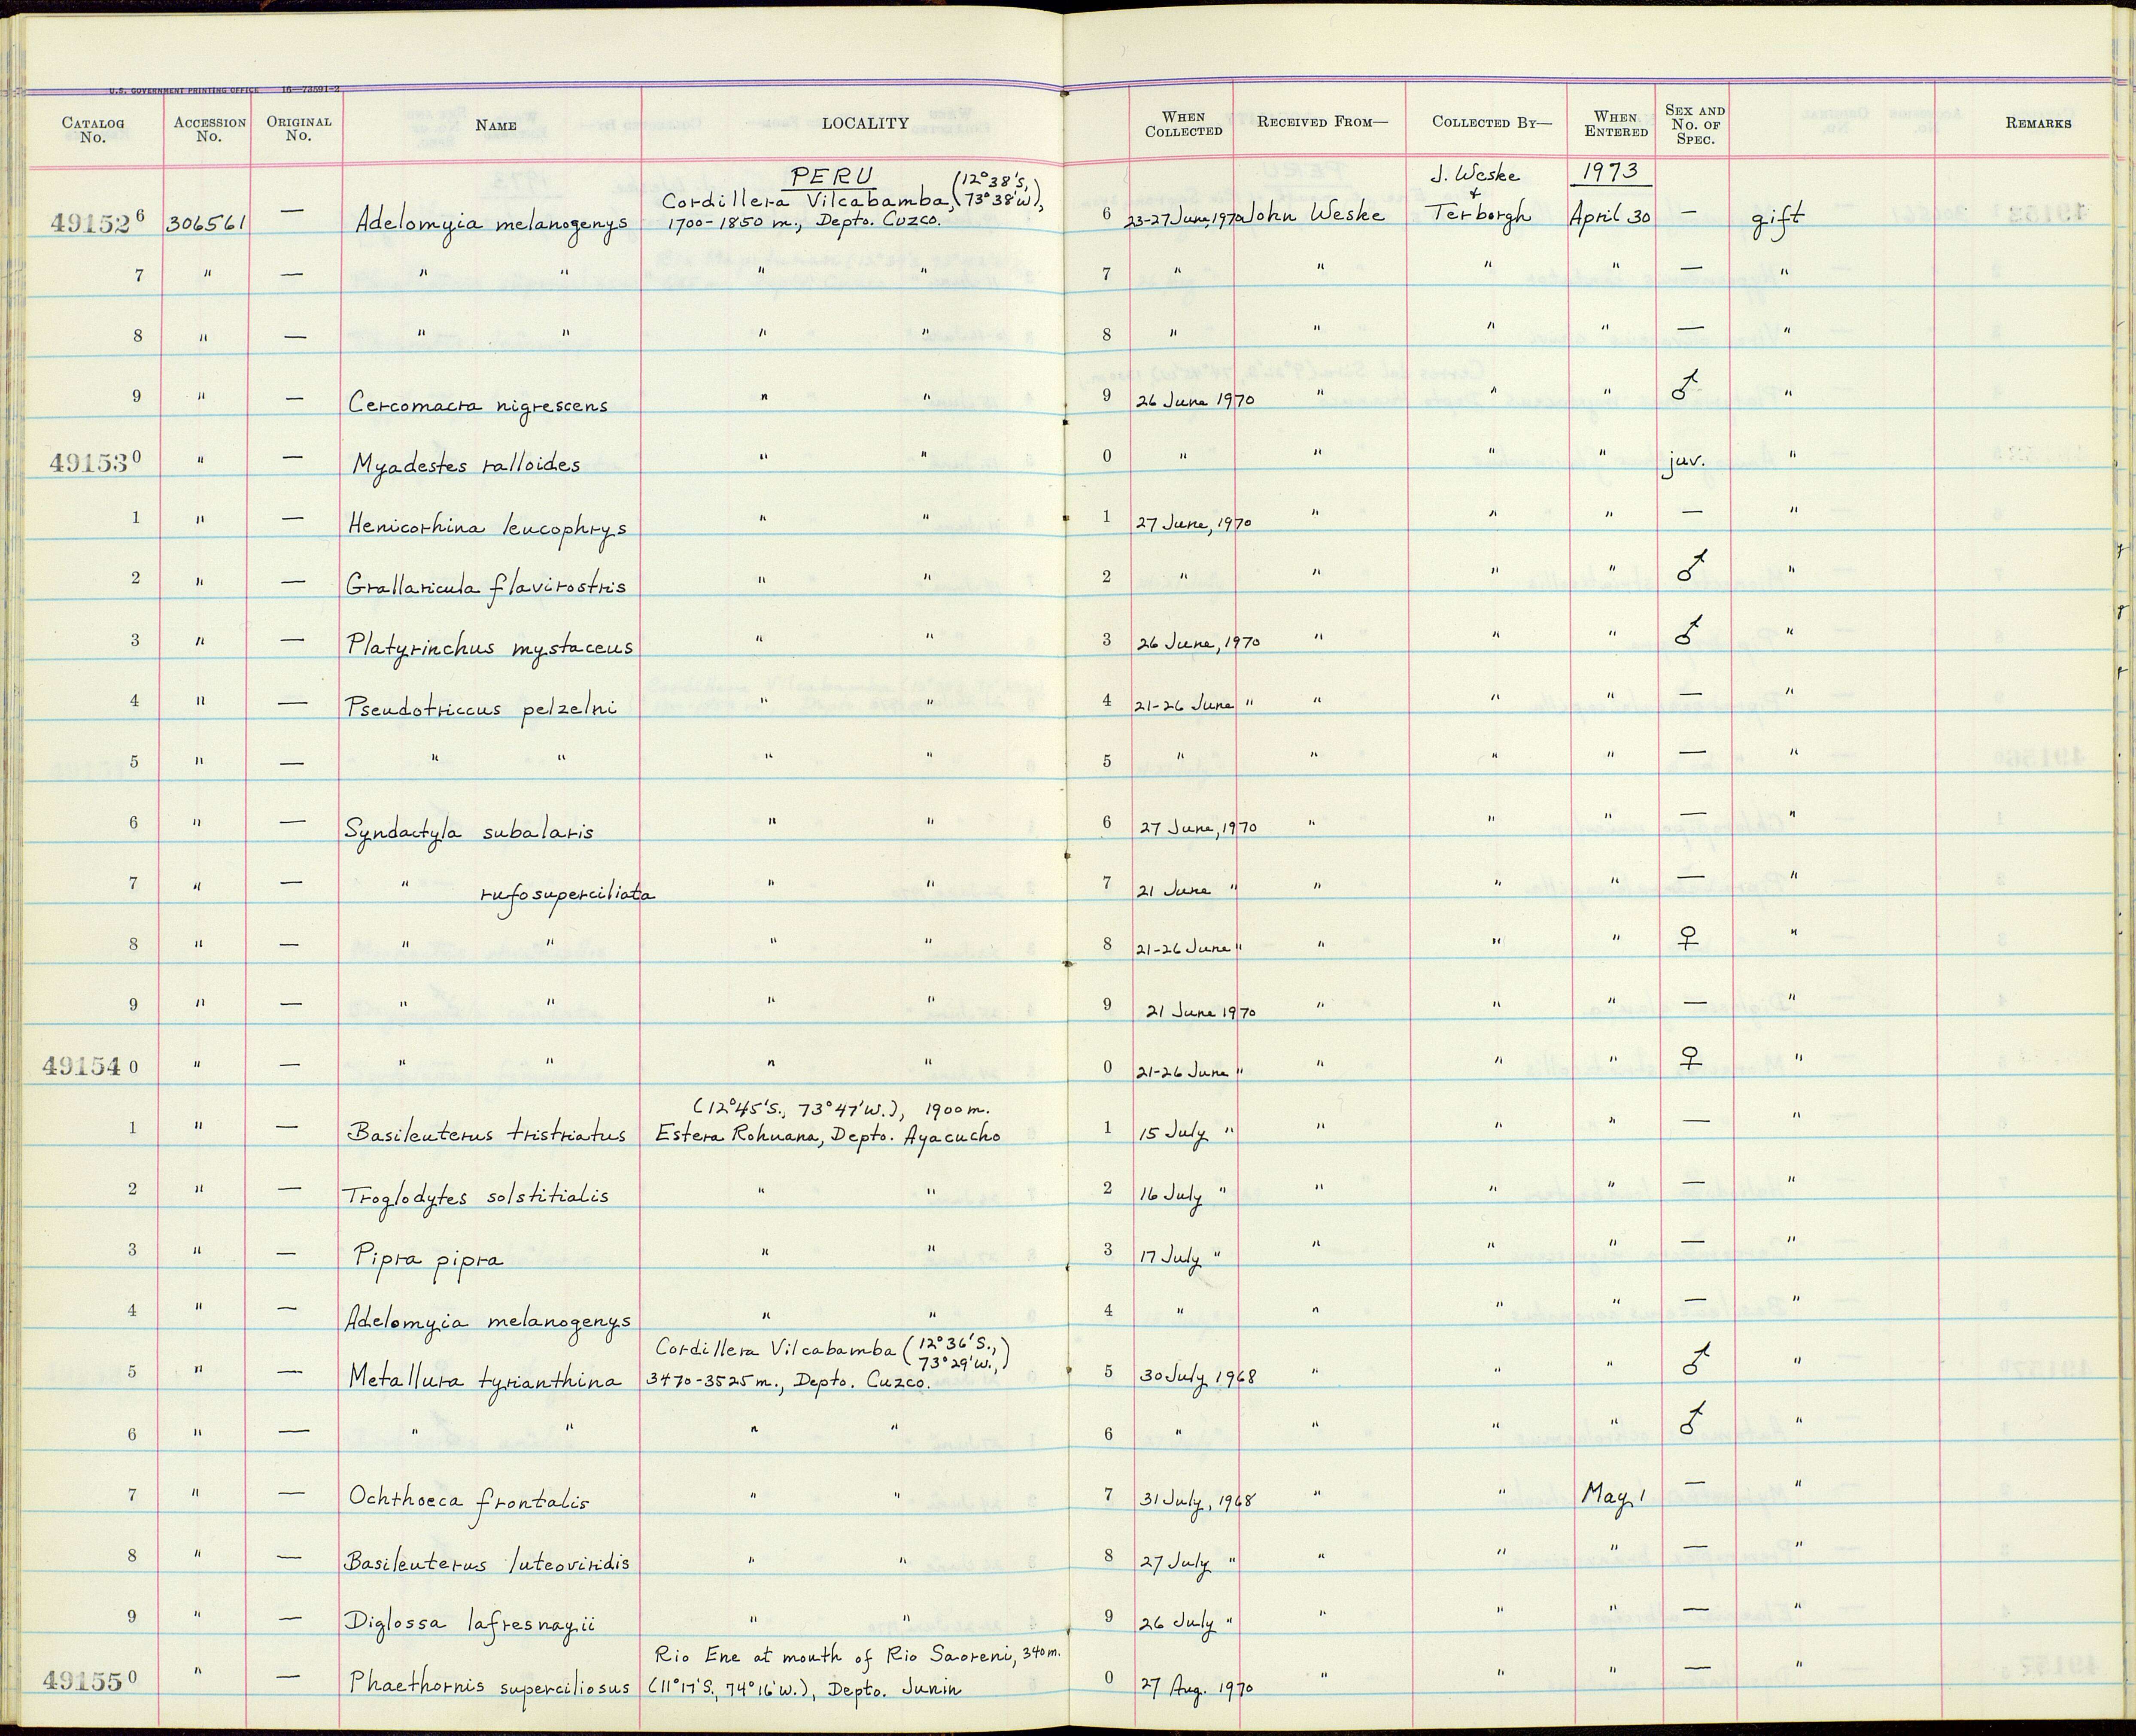 U.S. GOVERNMENT PRINTING OFFICE 16—73591-2
CATALOG No. ACCESSION No. ORIGINAL No. NAME LOCALITY WHEN COLLECTED RECEIVED FROM— COLLECTED BY— WHEN ENTERED SEX AND No. OF SPEC. REMARKS
PERU J. Weske 1973
Cordillera Vilcabamba, (12°38'S, 73°38'W), &
491526 306561 — Adelomyia melanogenys 1700-1850 m., Depto. Cuzco. 6 23-27 June, 1970 John Weske Terborgh April 30 — gift
7 " — " " " " 7 " " " " — "
8 " — " " " " 8 " " " " — "
9 " — Cercomacra nigrescens " " 9 26 June 1970 " " " ♂ "
491530 " — Myadestes ralloides " " 0 " " " " juv. "
1 " — Henicorhina leucophrys " " 1 27 June, 1970 " " " — "
2 " — Grallaricula flavirostris " " 2 " " " " ♂ "
3 " — Platyrinchus mystaceus " " 3 26 June, 1970 " " " ♂ "
4 " — Pseudotriccus pelzelni " " 4 21-26 June " " " " — "
5 " — " " " " 5 " " " " — "
6 " — Syndactyla subalaris " " 6 27 June, 1970 " " " — "
7 " — " rufosuperciliata " " 7 21 June " " " " — "
8 " — " " " " 8 21-26 June " " " " ♀ "
9 " — " " " " 9 21 June 1970 " " " — "
491540 " — " " " " 0 21-26 June " " " " ♀ "
(12°45'S., 73°47'W.), 1900m.
1 " — Basileuterus tristriatus Estera Rohuana, Depto. Ayacucho 1 15 July " " " " — "
2 " — Troglodytes solstitialis " " 2 16 July " " " " — "
3 " — Pipra pipra " " 3 17 July " " " " — "
4 " — Adelomyia melanogenys " " 4 " " " " — "
Cordillera Vilcabamba (12°36'S., 73°29'W.,)
5 " — Metallura tyrianthina 3470-3525m., Depto. Cuzco. 5 30 July 1968 " " " ♂ "
6 " — " " " " 6 " " " " ♂ "
7 " — Ochthoeca frontalis " " 7 31 July, 1968 " " May 1 — "
8 " — Basileuterus luteoviridis " " 8 27 July " " " " — "
9 " — Diglossa lafresnayii " " 9 26 July " " " " — "
Rio Ene at mouth of Rio Saoreni, 340m.
491550 " — Phaethornis superciliosus (11°17'S., 74°16'W.), Depto. Junin 0 27 Aug. 1970 " " " — "